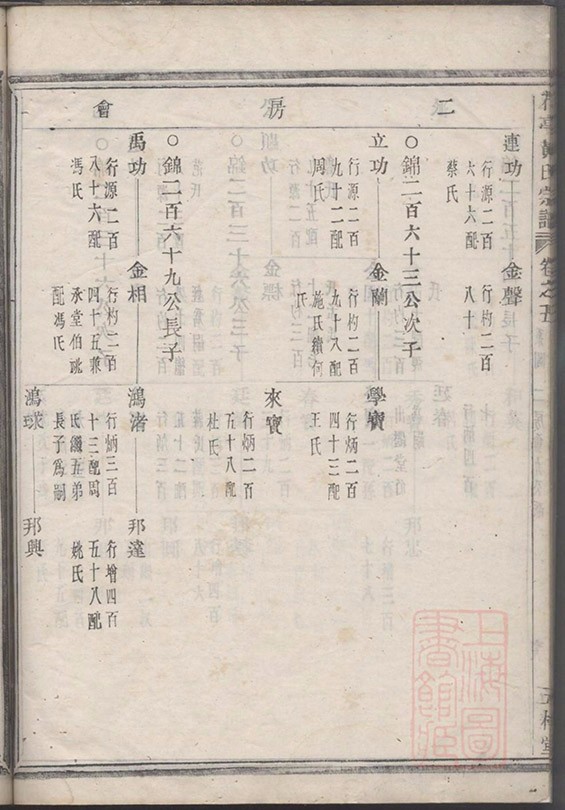 二房會
連功
行源二百
六十六配
蔡氏
金聲
行杓二百
八十
○錦二百六十三公次子
立功
行源二百
九十二配
周氏
金蘭
行杓二百
九十八配
施氏續何
學寶
行炳二百
四十三配
王氏
來寶
行炳二百
五十八配
杜氏
○錦二百六十九公長子
禹功
行源二百
八十六配
馮氏
金相
行杓二百
四十五兼
承堂伯祧
配馮氏
鴻渚
行炳三百
十三配周
氏繼五弟
長子為嗣
邦達
行增四百
五十八配
姚氏
鴻球
邦興
黃氏宗譜
卷之五
上海圖
書館藏